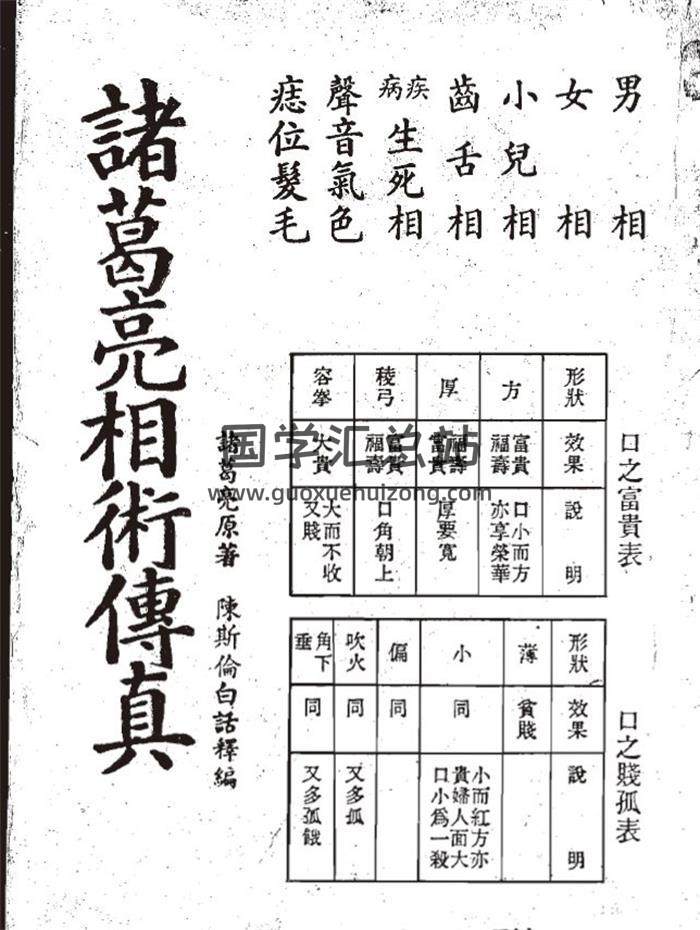 男相
女相
小兒相
齒舌相
疾病生死相
聲音氣色
痣位髮毛
諸葛亮相術傳真
諸葛亮原著 陳斯倫白話釋編
国学汇总站
www.guoxuehuizong.com
口之富貴表
形狀 效果 說明
方 富貴福壽 口小而方亦享榮華
厚 福壽富貴 厚要寬
稜弓 富貴福壽 口角朝上
容拳 大貴 大而不收又賤
口之賤孤表
形狀 效果 說明
薄 貧賤
小 同 小而紅方亦貴婦人面大口小爲一殺
偏 同
吹火 同 又多孤
角下垂 同 又多孤餓